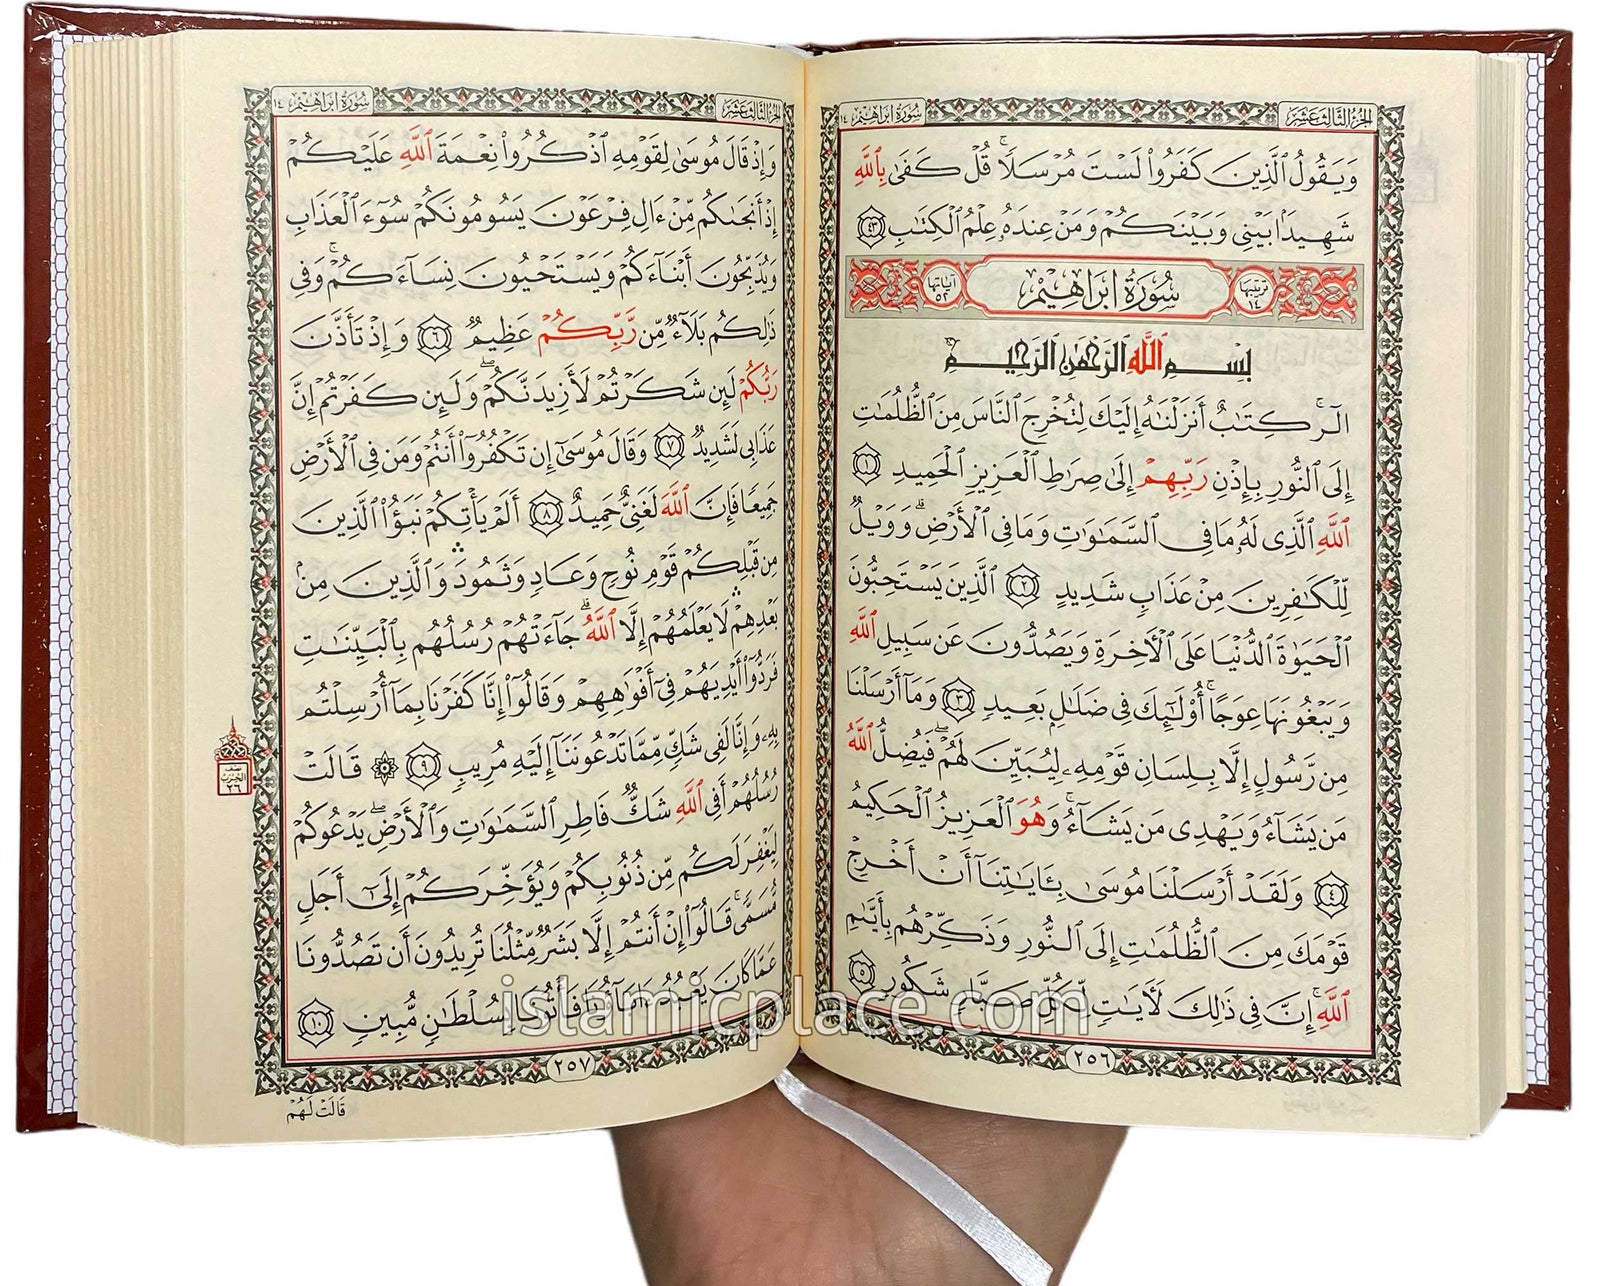 الجزء الثالث عشر
سورة ابراهيم ١٤
وَيَقُولُ ٱلَّذِينَ كَفَرُواْ لَسْتَ مُرْسَلًاۚ قُلْ كَفَىٰ بِٱللَّهِ
شَهِيدًۢا بَيْنِى وَبَيْنَكُمْ وَمَنْ عِندَهُۥ عِلْمُ ٱلْكِتَٰبِ ٤٣
ترتيبها ١٤ سُورَةُ ابراهِيْم آياتها ٥٢
بِسْمِ ٱللَّهِ ٱلرَّحْمَٰنِ ٱلرَّحِيمِ
الٓرۚ كِتَٰبٌ أَنزَلْنَٰهُ إِلَيْكَ لِتُخْرِجَ ٱلنَّاسَ مِنَ ٱلظُّلُمَٰتِ
إِلَى ٱلنُّورِ بِإِذْنِ رَبِّهِمْ إِلَىٰ صِرَٰطِ ٱلْعَزِيزِ ٱلْحَمِيدِ ١
ٱللَّهِ ٱلَّذِى لَهُۥ مَا فِى ٱلسَّمَٰوَٰتِ وَمَا فِى ٱلْأَرْضِۗ وَوَيْلٌ
لِّلْكَٰفِرِينَ مِنْ عَذَابٍ شَدِيدٍ ٢ ٱلَّذِينَ يَسْتَحِبُّونَ
ٱلْحَيَوٰةَ ٱلدُّنْيَا عَلَى ٱلْأٓخِرَةِ وَيَصُدُّونَ عَن سَبِيلِ ٱللَّهِ
وَيَبْغُونَهَا عِوَجًاۚ أُوْلَٰٓئِكَ فِى ضَلَٰلٍۭ بَعِيدٍ ٣ وَمَآ أَرْسَلْنَا
مِن رَّسُولٍ إِلَّا بِلِسَانِ قَوْمِهِۦ لِيُبَيِّنَ لَهُمْۖ فَيُضِلُّ ٱللَّهُ
مَن يَشَآءُ وَيَهْدِى مَن يَشَآءُۚ وَهُوَ ٱلْعَزِيزُ ٱلْحَكِيمُ
٤ وَلَقَدْ أَرْسَلْنَا مُوسَىٰ بِـَٔايَٰتِنَآ أَنْ أَخْرِجْ
قَوْمَكَ مِنَ ٱلظُّلُمَٰتِ إِلَى ٱلنُّورِ وَذَكِّرْهُم بِأَيَّىٰمِ
ٱللَّهِۚ إِنَّ فِى ذَٰلِكَ لَأٓيَٰتٍ لِّكُلِّ صَبَّارٍ شَكُورٍ ٥
٢٥٦
الجزء الثالث عشر
سورة ابراهيم ١٤
وَإِذْ قَالَ مُوسَىٰ لِقَوْمِهِ ٱذْكُرُواْ نِعْمَةَ ٱللَّهِ عَلَيْكُمْ
إِذْ أَنجَىٰكُم مِّنْ ءَالِ فِرْعَوْنَ يَسُومُونَكُمْ سُوٓءَ ٱلْعَذَابِ
وَيُذَبِّحُونَ أَبْنَآءَكُمْ وَيَسْتَحْيُونَ نِسَآءَكُمْۚ وَفِى
ذَٰلِكُم بَلَآءٌ مِّن رَّبِّكُمْ عَظِيمٌ ٦ وَإِذْ تَأَذَّنَ
رَبُّكُمْ لَئِن شَكَرْتُمْ لَأَزِيدَنَّكُمْۖ وَلَئِن كَفَرْتُمْ إِنَّ
عَذَابِى لَشَدِيدٌ ٧ وَقَالَ مُوسَىٰٓ إِن تَكْفُرُوٓاْ أَنتُمْ وَمَن فِى ٱلْأَرْضِ
جَمِيعًا فَإِنَّ ٱللَّهَ لَغَنِىٌّ حَمِيدٌ ٨ أَلَمْ يَأْتِكُمْ نَبَؤُاْ ٱلَّذِينَ
مِن قَبْلِكُمْ قَوْمِ نُوحٍ وَعَادٍ وَثَمُودَۛ وَٱلَّذِينَ مِنۢ
بَعْدِهِمْۛ لَا يَعْلَمُهُمْ إِلَّا ٱللَّهُۚ جَآءَتْهُمْ رُسُلُهُم بِٱلْبَيِّنَٰتِ
فَرَدُّوٓاْ أَيْدِيَهُمْ فِىٓ أَفْوَٰهِهِمْ وَقَالُوٓاْ إِنَّا كَفَرْنَا بِمَآ أُرْسِلْتُم
بِهِۦ وَإِنَّا لَفِى شَكٍّ مِّمَّا تَدْعُونَنَآ إِلَيْهِ مُرِيبٍ ٩ قَالَتْ
رُسُلُهُمْ أَفِى ٱللَّهِ شَكٌّ فَاطِرِ ٱلسَّمَٰوَٰتِ وَٱلْأَرْضِۖ يَدْعُوكُمْ
لِيَغْفِرَ لَكُم مِّن ذُنُوبِكُمْ وَيُؤَخِّرَكُمْ إِلَىٰٓ أَجَلٍ
مُّسَمًّىۚ قَالُوٓاْ إِنْ أَنتُمْ إِلَّا بَشَرٌ مِّثْلُنَا تُرِيدُونَ أَن تَصُدُّونَا
عَمَّا كَانَ يَعْبُدُ ءَابَآؤُنَا فَأْتُونَا بِسُلْطَٰنٍ مُّبِينٍ ١٠
نصف الحزب ٢٦
٢٥٧
قَالَتْ لَهُمْ
islamicplace.com